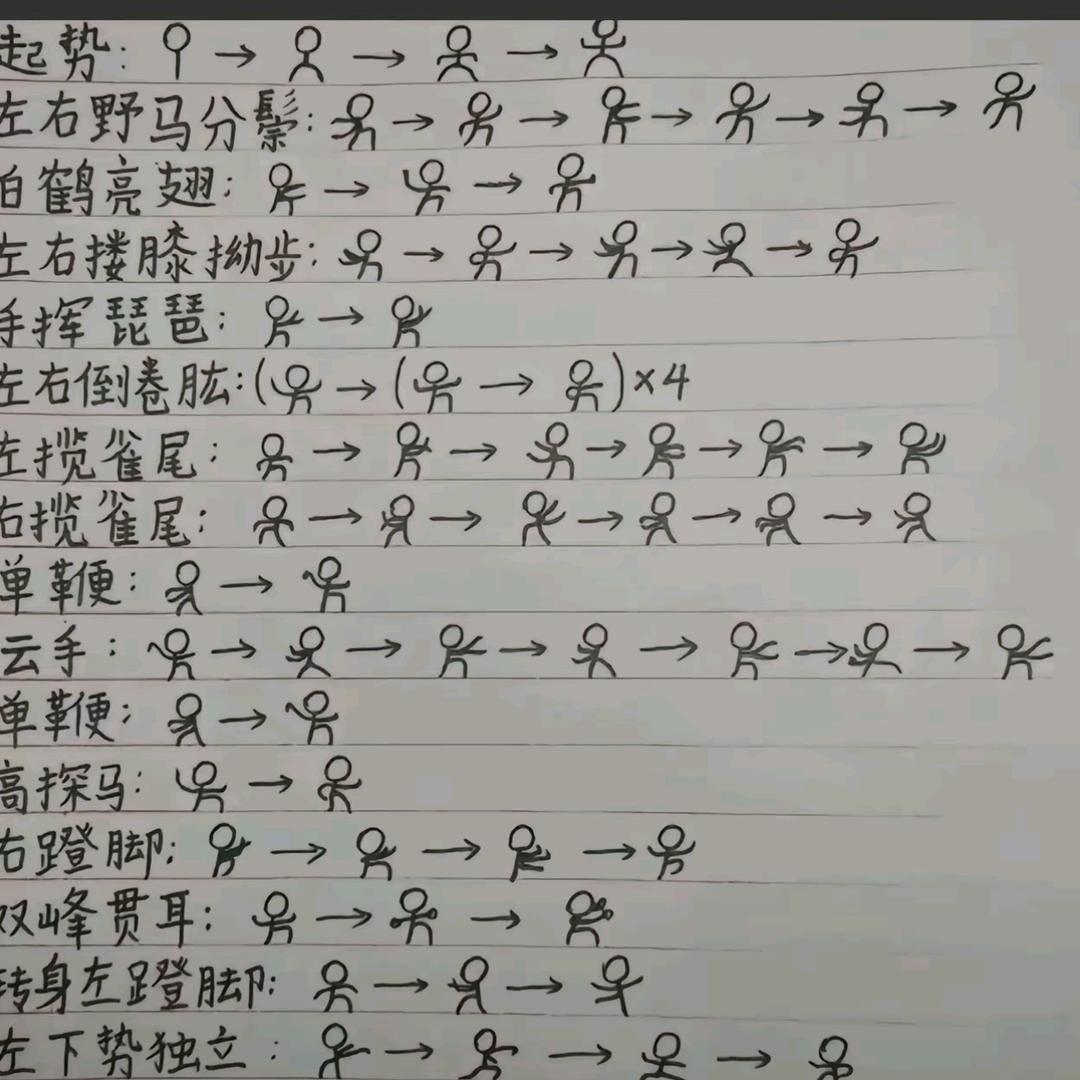 起势: → → →
左右野马分鬃: → → → → →
白鹤亮翅: → →
左右搂膝拗步: → → → →
手挥琵琶: →
左右倒卷肱: ( → ( → )×4
左揽雀尾: → → → → →
右揽雀尾: → → → → →
单鞭: →
云手: → → → → → →
单鞭: →
高探马: →
右蹬脚: → → →
双峰贯耳: → →
转身左蹬脚: → →
左下势独立: → → →